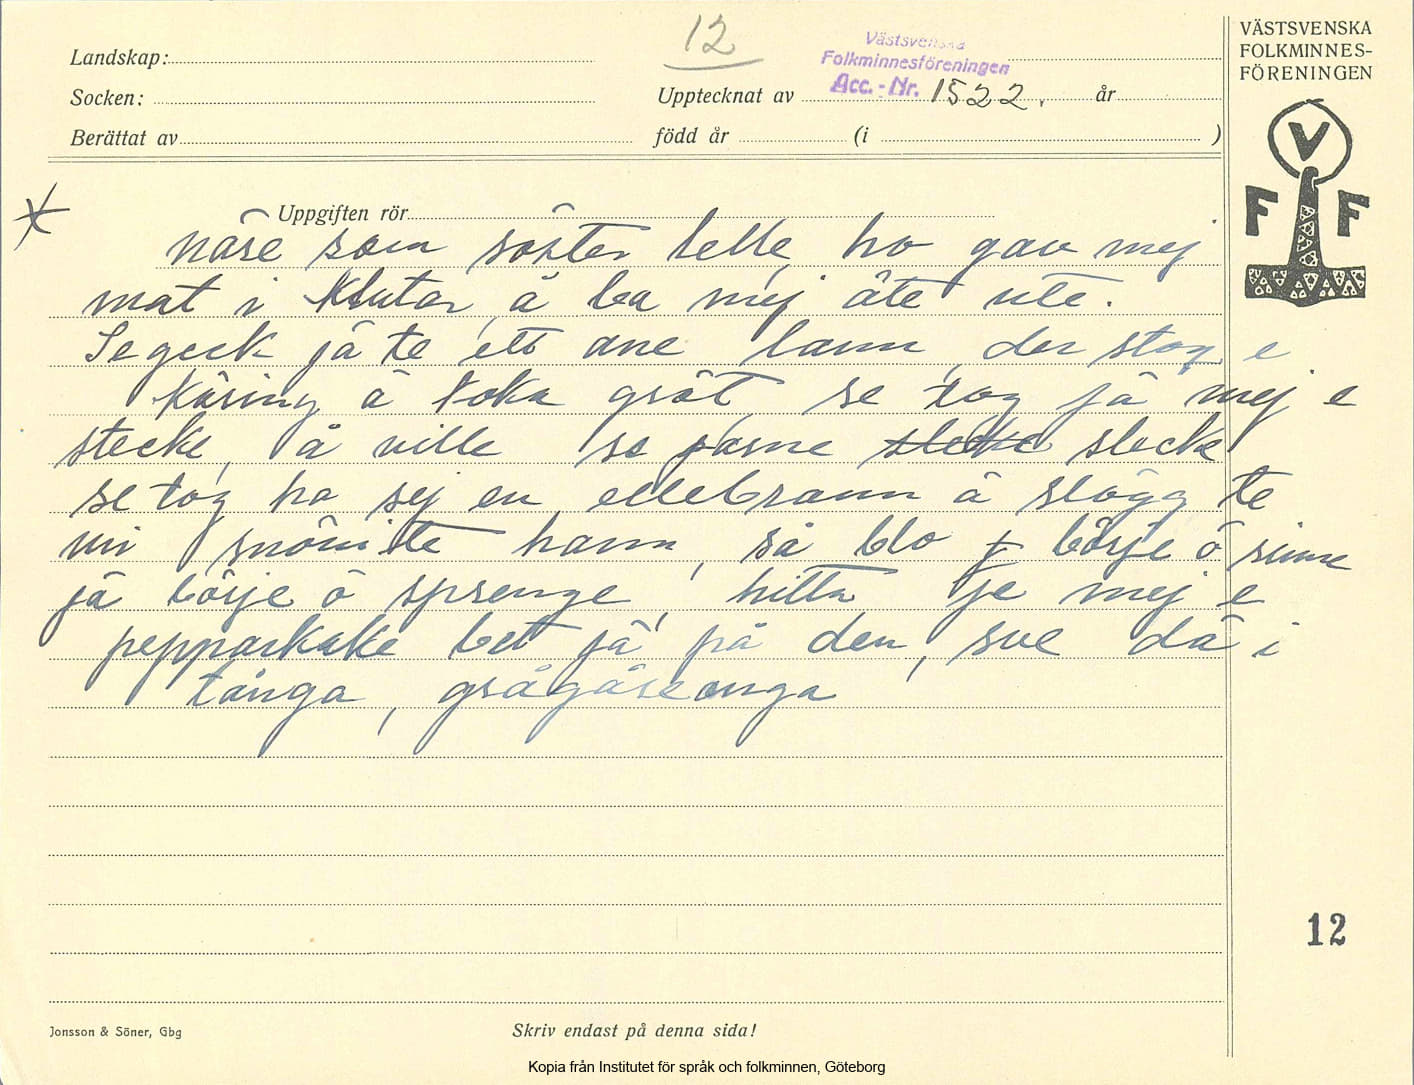 12
Västsvenska
Folkminnesföreningen
Acc.-Nr. 1522.
Landskap:
Socken:
Upptecknat av
år
Berättat av
född år
(i
)
VÄSTSVENSKA
FOLKMINNES-
FÖRENINGEN
V
F F
Uppgiften rör
näse som söster lelle, ho gav mej
mat i klutar, å ba mej äte ute.
Se geck jä te ett ane lann, der stog e
käring å koka gröt, se tog jä mej e
stecke, å ville se jasne slecke slecke
se tog ho sej en ellebrann å slögg te
mi snöuite hann, så blo f börje ö sinne
jä börje ö sprenge, hitta je mej e
pepparkake bet jä på den, sve dä i
tånga, grågåseonga
12
Jonsson & Söner, Gbg
Skriv endast på denna sida!
Kopia från Institutet för språk och folkminnen, Göteborg